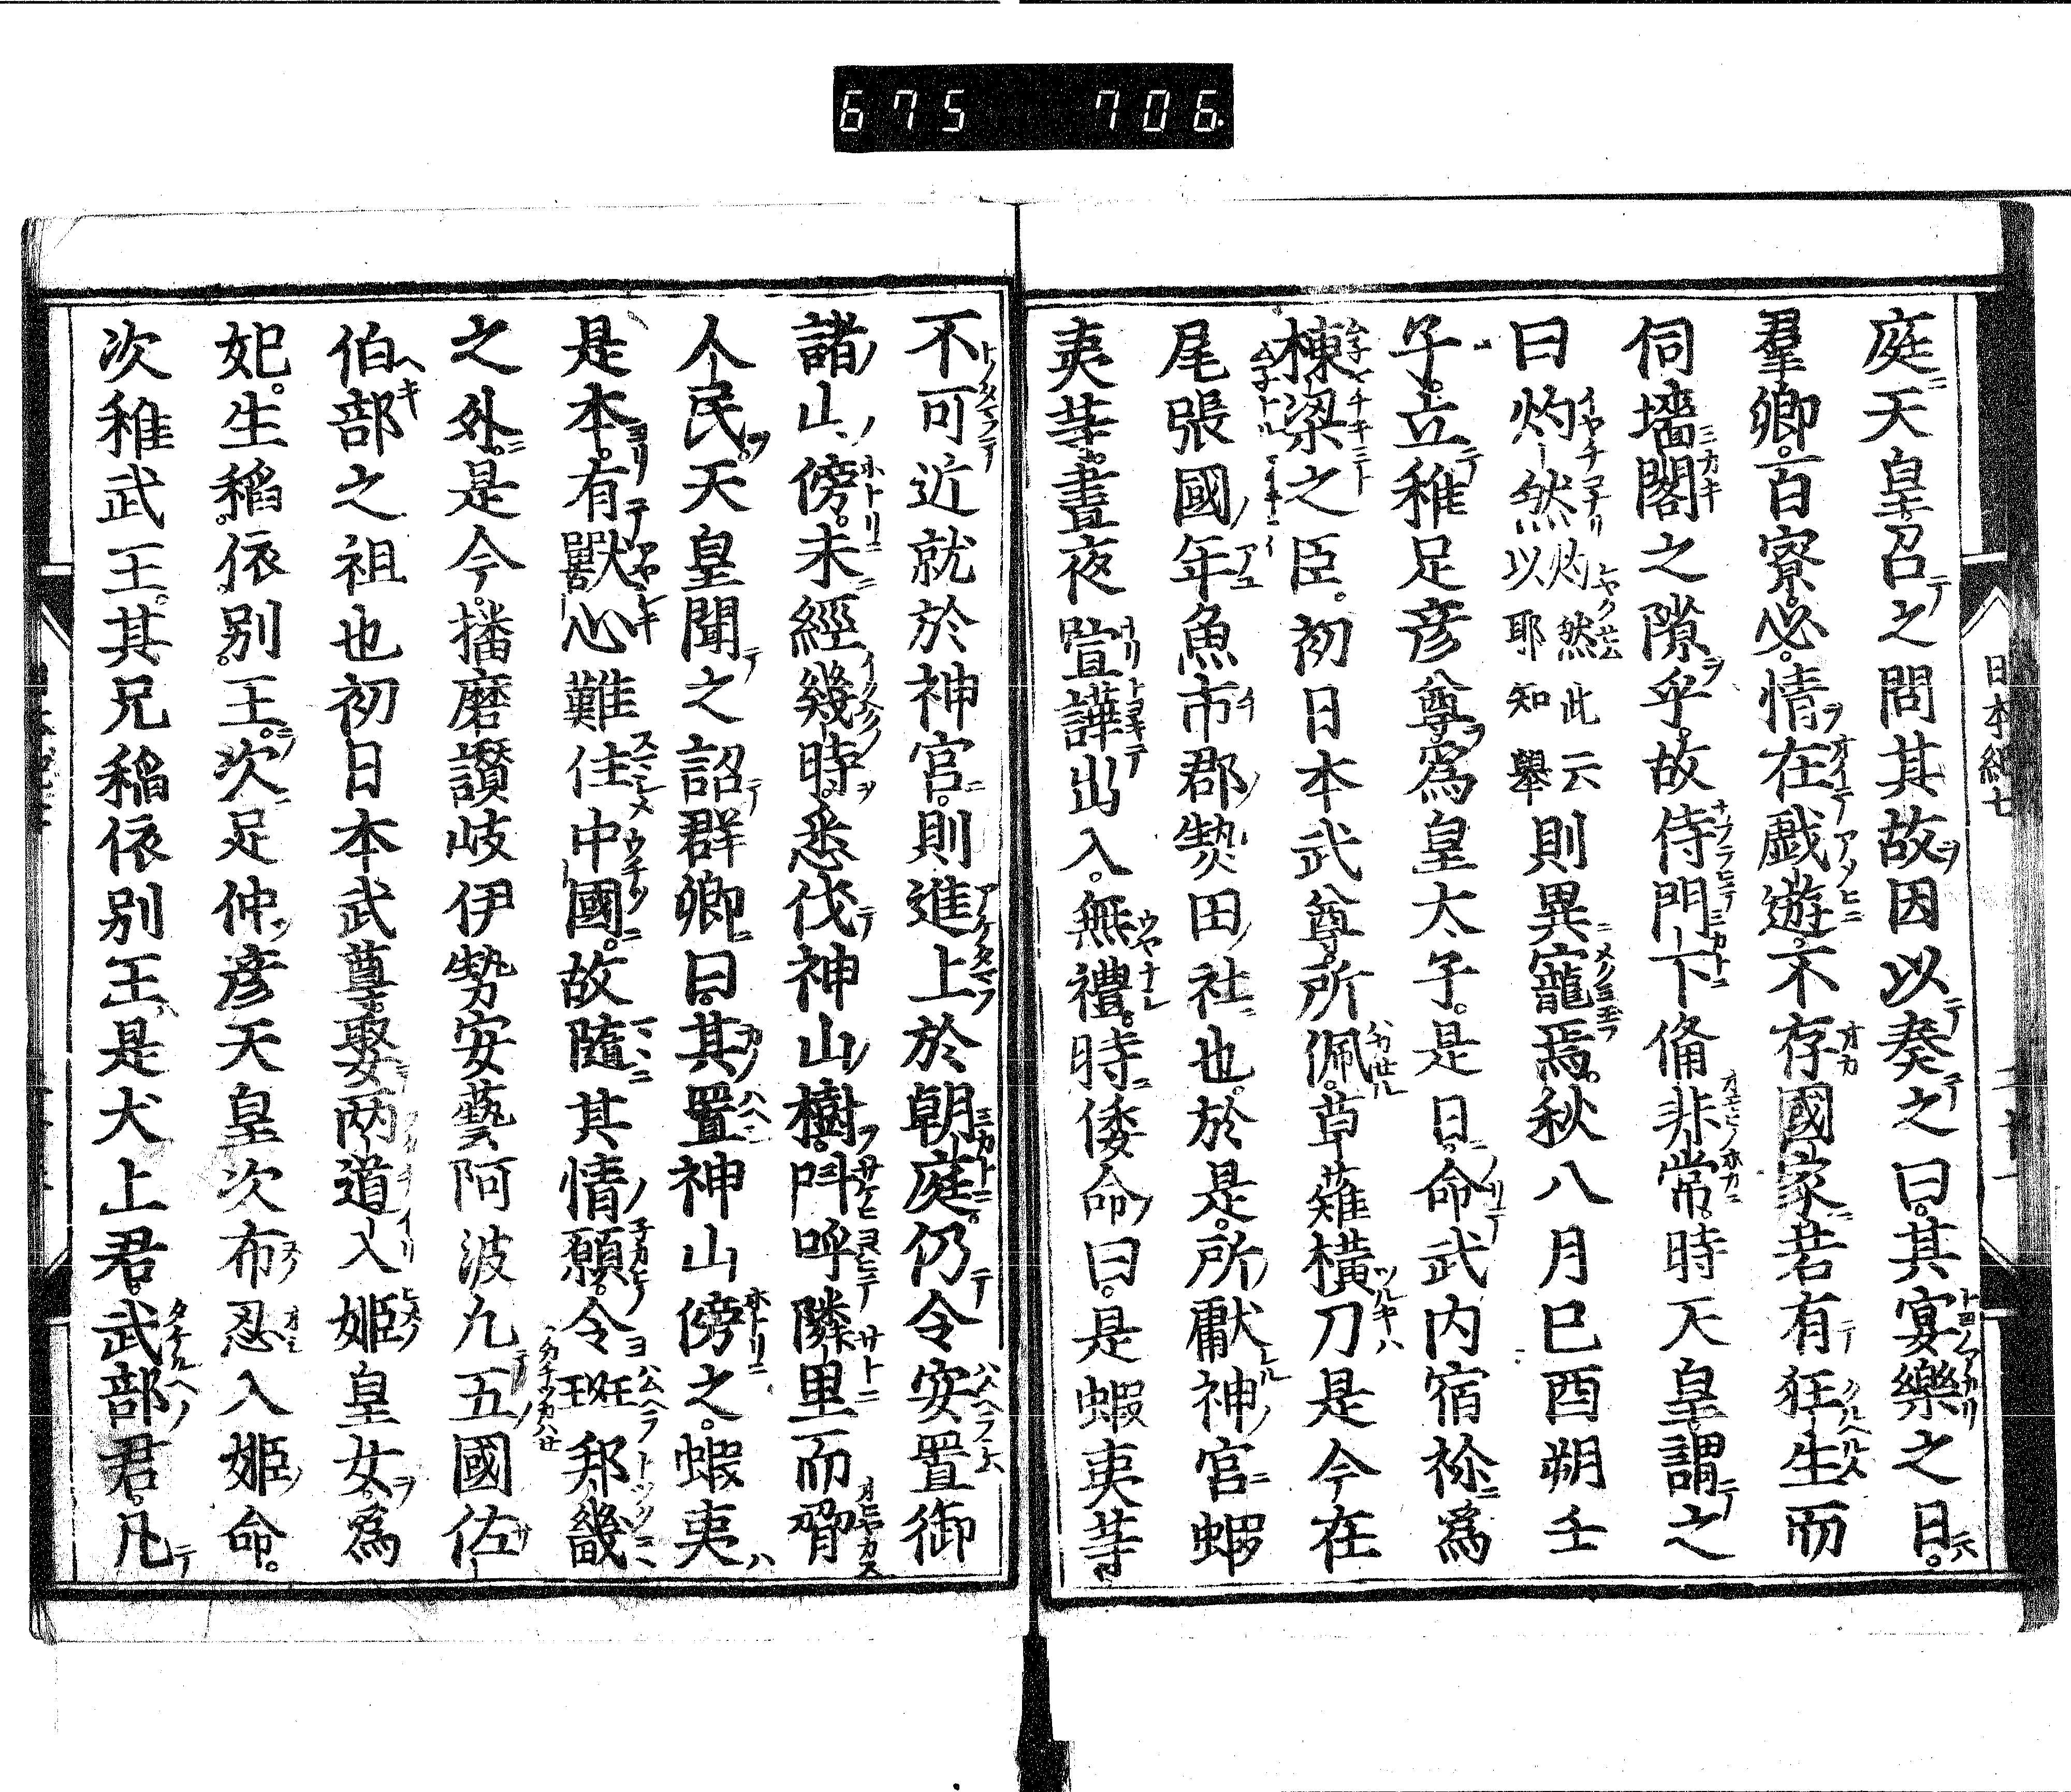 675 706.
日本紀七
庭天皇召之問其故因以奏之曰其宴樂之日
羣卿百寮必情在戯遊不存國家若有狂生而
伺墻閤之隙乎故侍門下備非常時天皇謂之
曰灼然灼然此云以耶知擧則異寵焉秋八月巳酉朔壬
子立稚足彦尊爲皇太子是日命武内宿祢爲
棟梁之臣初日本武尊所佩草薙横刀是今在
尾張國年魚市郡𤍠田社也於是所獻神宮蝦
夷等晝夜喧譁出入無禮時倭命曰是蝦夷等
不可近就於神宮則進上於朝庭仍令安置御
諸山傍未經幾時悉伐神山樹呌呼隣里而脅
人民天皇聞之詔群卿曰其置神山傍之蝦夷
是本有獸心難住中國故隨其情願令班邦畿
之外是今播磨讃岐伊勢安藝阿波凢五國佐
伯部之祖也初日本武尊娶两道入姫皇女爲
妃生稻依别王次足仲彦天皇次布忍入姫命
次稚武王其兄稻依别王是犬上君武部君凡